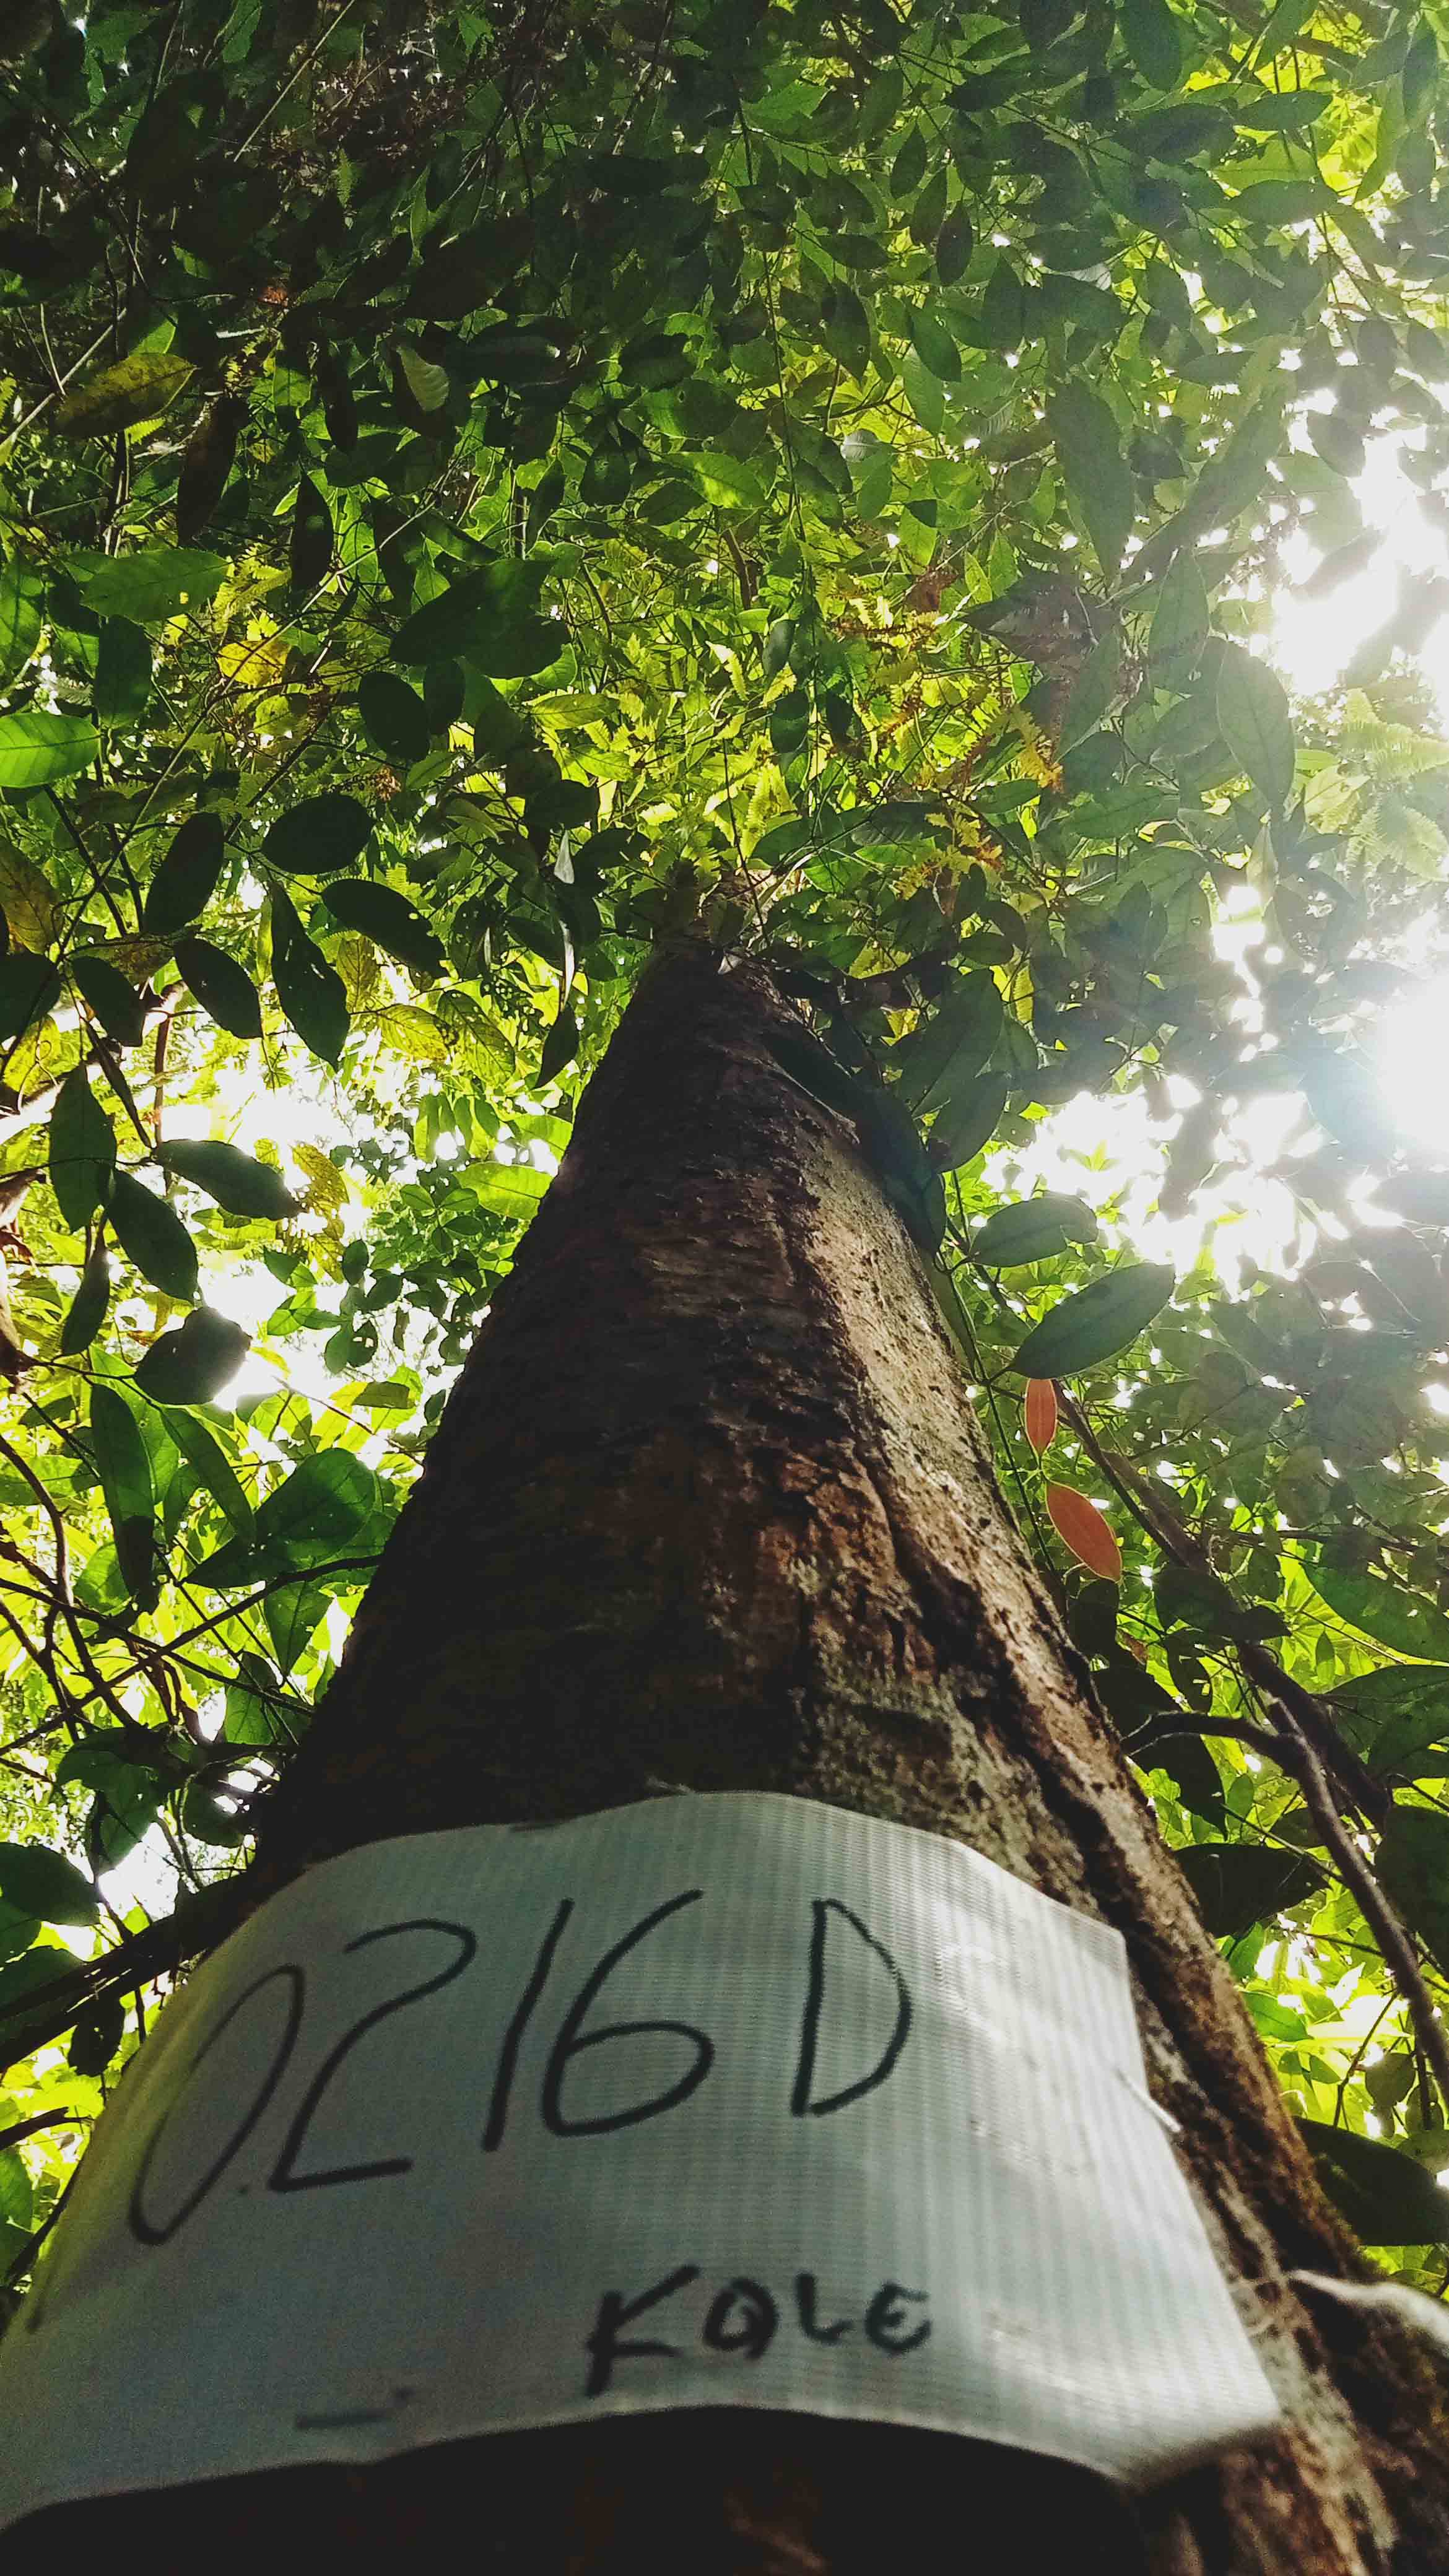 0.216 D
KOLE